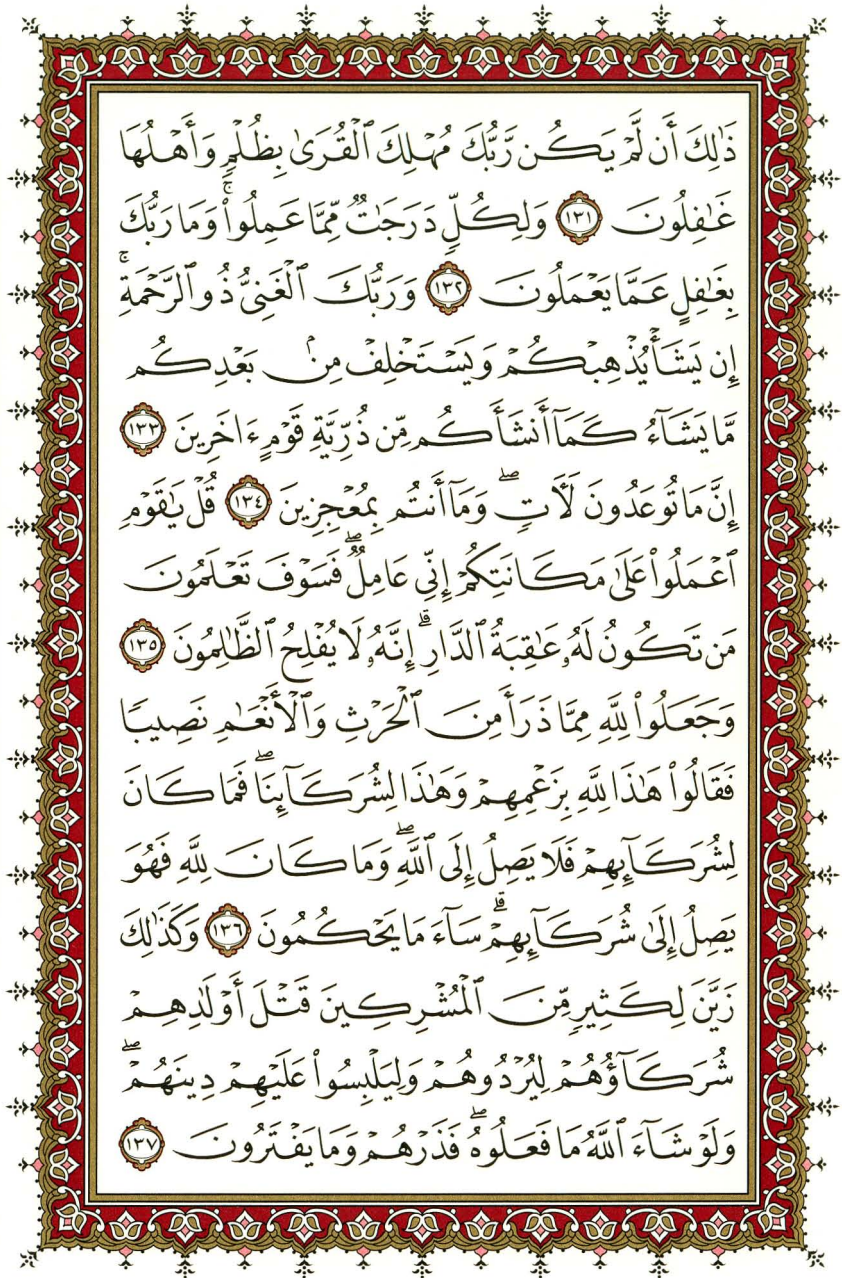 ذَٰلِكَ أَن لَّمْ يَكُن رَّبُّكَ مُهْلِكَ ٱلْقُرَىٰ بِظُلْمٍ وَأَهْلُهَا
غَـٰفِلُونَ ١٣١ وَلِكُلٍّ دَرَجَـٰتٌ مِّمَّا عَمِلُوا۟ ۚ وَمَا رَبُّكَ
بِغَـٰفِلٍ عَمَّا يَعْمَلُونَ ١٣٢ وَرَبُّكَ ٱلْغَنِىُّ ذُو ٱلرَّحْمَةِ ۚ
إِن يَشَأْ يُذْهِبْكُمْ وَيَسْتَخْلِفْ مِنۢ بَعْدِكُم
مَّا يَشَآءُ كَمَآ أَنشَأَكُم مِّن ذُرِّيَّةِ قَوْمٍ ءَاخَرِينَ ١٣٣
إِنَّ مَا تُوعَدُونَ لَـَٔاتٍ ۖ وَمَآ أَنتُم بِمُعْجِزِينَ ١٣٤ قُلْ يَـٰقَوْمِ
ٱعْمَلُوا۟ عَلَىٰ مَكَانَتِكُمْ إِنِّى عَامِلٌ ۖ فَسَوْفَ تَعْلَمُونَ
مَن تَكُونُ لَهُۥ عَـٰقِبَةُ ٱلدَّارِ ۗ إِنَّهُۥ لَا يُفْلِحُ ٱلظَّـٰلِمُونَ ١٣٥
وَجَعَلُوا۟ لِلَّهِ مِمَّا ذَرَأَ مِنَ ٱلْحَرْثِ وَٱلْأَنْعَـٰمِ نَصِيبًا
فَقَالُوا۟ هَـٰذَا لِلَّهِ بِزَعْمِهِمْ وَهَـٰذَا لِشُرَكَآئِنَا ۖ فَمَا كَانَ
لِشُرَكَآئِهِمْ فَلَا يَصِلُ إِلَى ٱللَّهِ ۖ وَمَا كَانَ لِلَّهِ فَهُوَ
يَصِلُ إِلَىٰ شُرَكَآئِهِمْ ۗ سَآءَ مَا يَحْكُمُونَ ١٣٦ وَكَذَٰلِكَ
زَيَّنَ لِكَثِيرٍ مِّنَ ٱلْمُشْرِكِينَ قَتْلَ أَوْلَـٰدِهِمْ
شُرَكَآؤُهُمْ لِيُرْدُوهُمْ وَلِيَلْبِسُوا۟ عَلَيْهِمْ دِينَهُمْ ۖ
وَلَوْ شَآءَ ٱللَّهُ مَا فَعَلُوهُ ۖ فَذَرْهُمْ وَمَا يَفْتَرُونَ ١٣٧